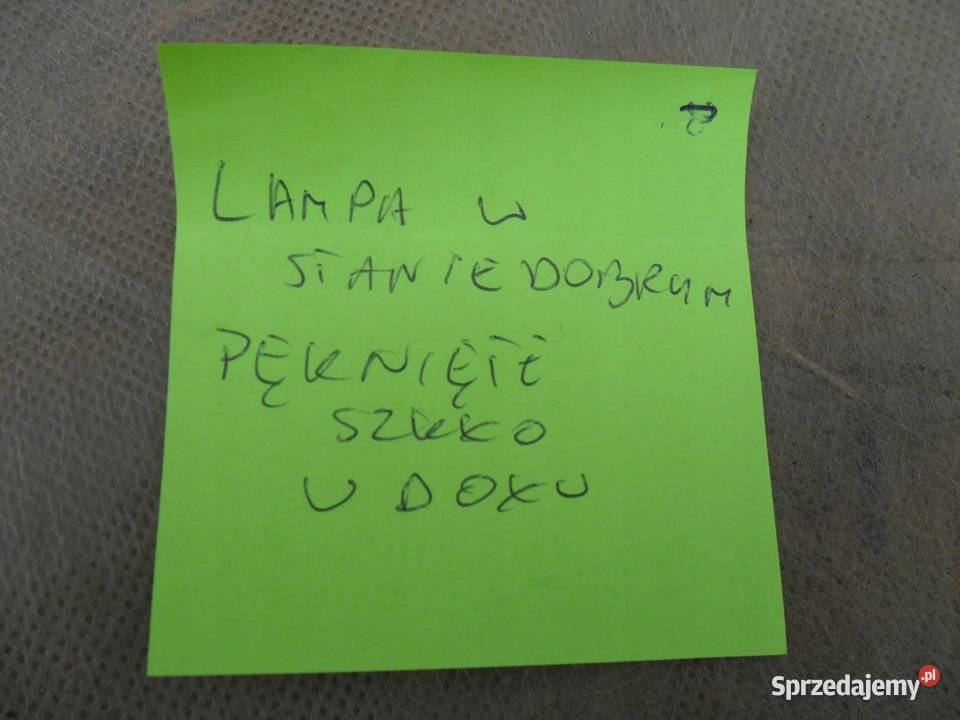 LAMPA W
STANIE DOBRYM
PĘKNIĘTE
SZKŁO
U DOŁU
Sprzedajemy.pl